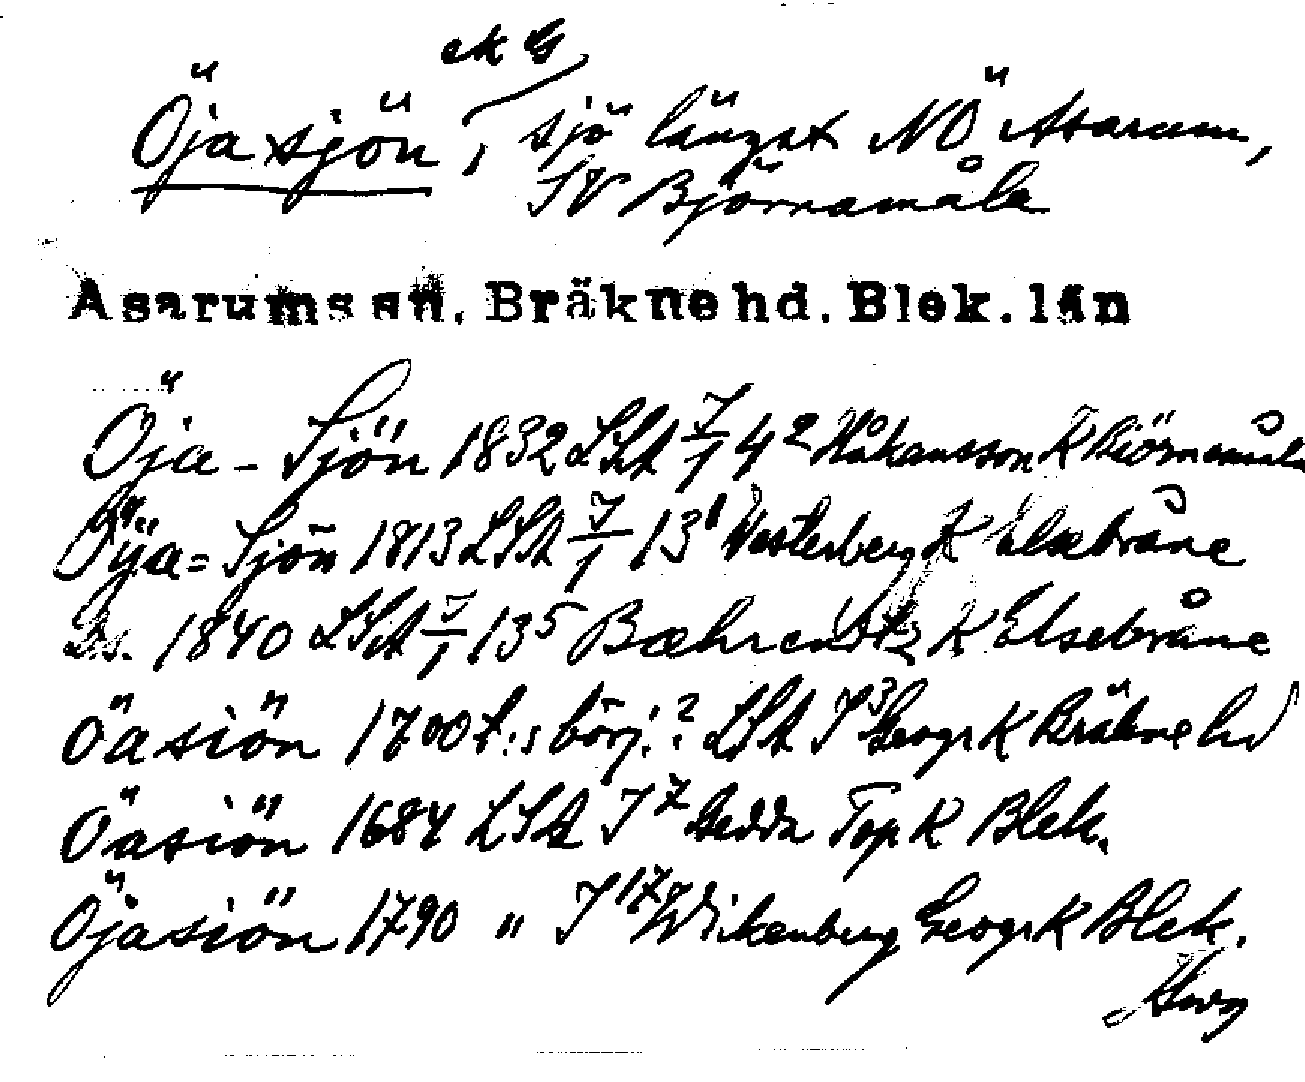 ek G
Öjasjön, sjö längst NÖ Asarum,
SV Björnamåla
Asarums sn. Bräkne hd. Blek. län
Öja-Sjön 1832 LSA J/1 4² Håkansson K Biörnamåla
Öÿa=Sjön 1813 LSA J/1 13¹ Westerberg K Elsebråne
Ds. 1840 LSA J/1 13⁵ Bæhrentz K Elsebråne
Öasiön 1700 t:s börj.? LSA J³ Geogr K Bräkne hd
Öasiön 1684 LSA J⁷ Gedda Top K Blek.
Öjasiön 1790 " J¹⁷ Wikenberg Geogr K Blek.